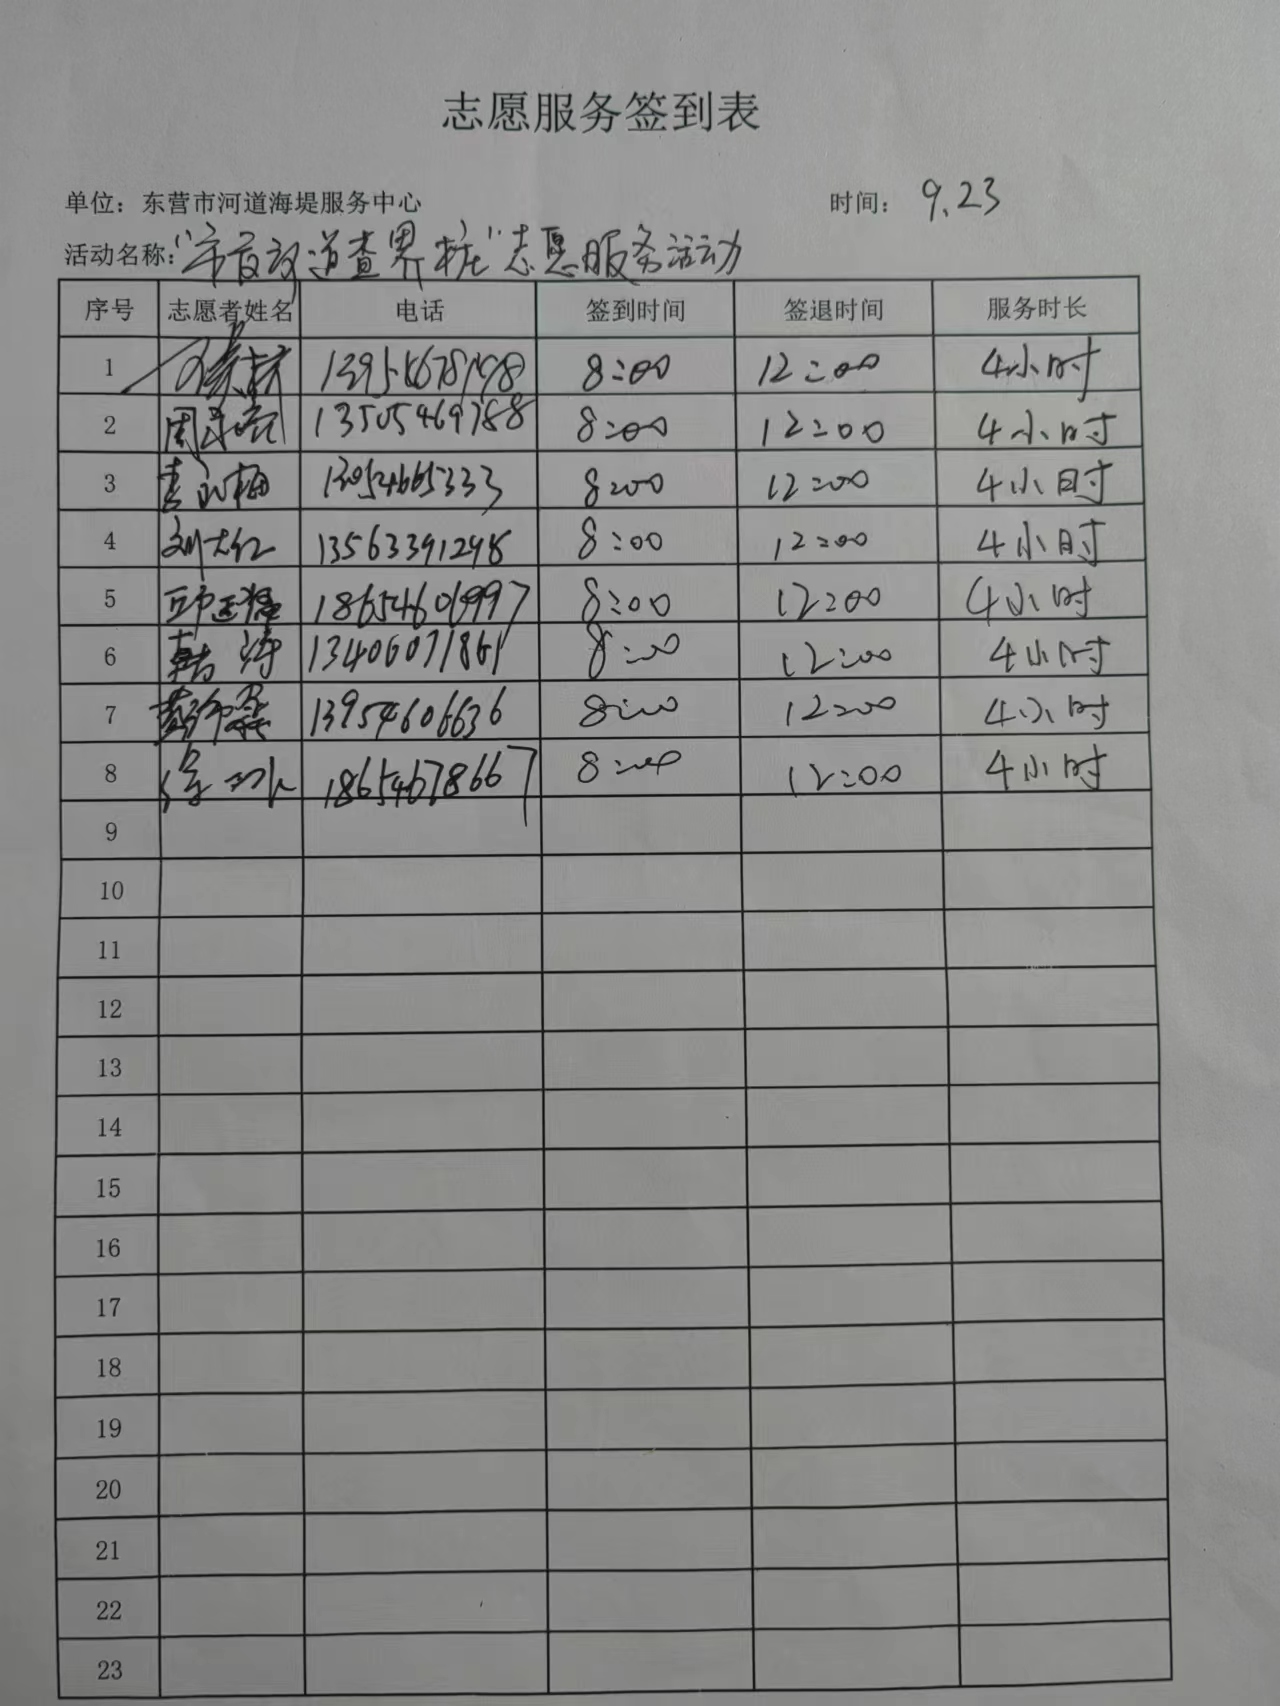 志愿服务签到表
单位：东营市河道海堤服务中心 时间：9.23
活动名称：“市首河道查界桩”志愿服务活动
序号 志愿者姓名 电话 签到时间 签退时间 服务时长
1 8:00 12:00 4小时
2 13505469788 8:00 12:00 4小时
3 13054665333 8:00 12:00 4小时
4 刘大仁 13563391298 8:00 12:00 4小时
5 18654606997 8:00 12:00 4小时
6 韩涛 13406071861 8:00 12:00 4小时
7 13954606636 8:00 12:00 4小时
8 18654678667 8:00 12:00 4小时
9
10
11
12
13
14
15
16
17
18
19
20
21
22
23